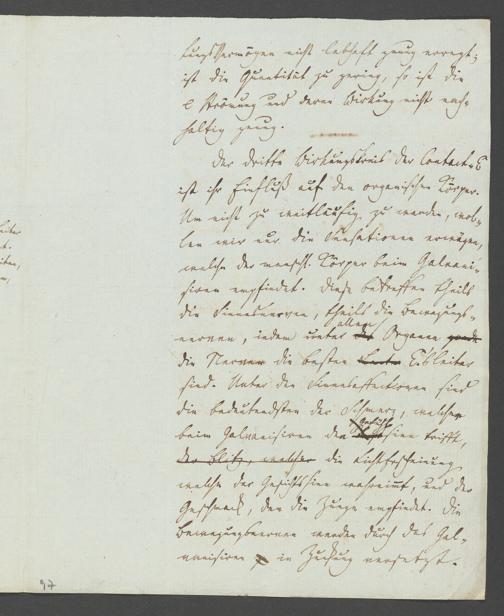 tungsvermögen nicht lebhaft genug erregt;
ist die Quantität zu gering, so ist die
e Strömung und deren Wirkung nicht nach-
haltig genug.
Der dritte Wirkungskreis der Contact-E
ist ihr Einfluß auf den organischen Körper.
Um nicht zu weitläufig zu werden, wol-
len wir nur die Sensationen erwägen,
welche der menschl. Körper beim Galvani-
siren empfindet. Diese betreffen theils
die Sinnesnerven, theils die Bewegungs-
nerven, indem unter allen Organen
die Nerven die besten E.leiter
sind. Unter den Sinnesaffectionen sind
die bedeutendsten der Schmerz, welcher
beim Galvanisiren den Gefühlssinn trifft,
der Blitz, welcher die Lichterscheinung,
welche der Gesichtssinn wahrnimmt, und der
Geschmack, den die Zunge empfindet. Die
Bewegungsnerven werden durch das Gal-
vanisiren in Zuckung versetzt.
97